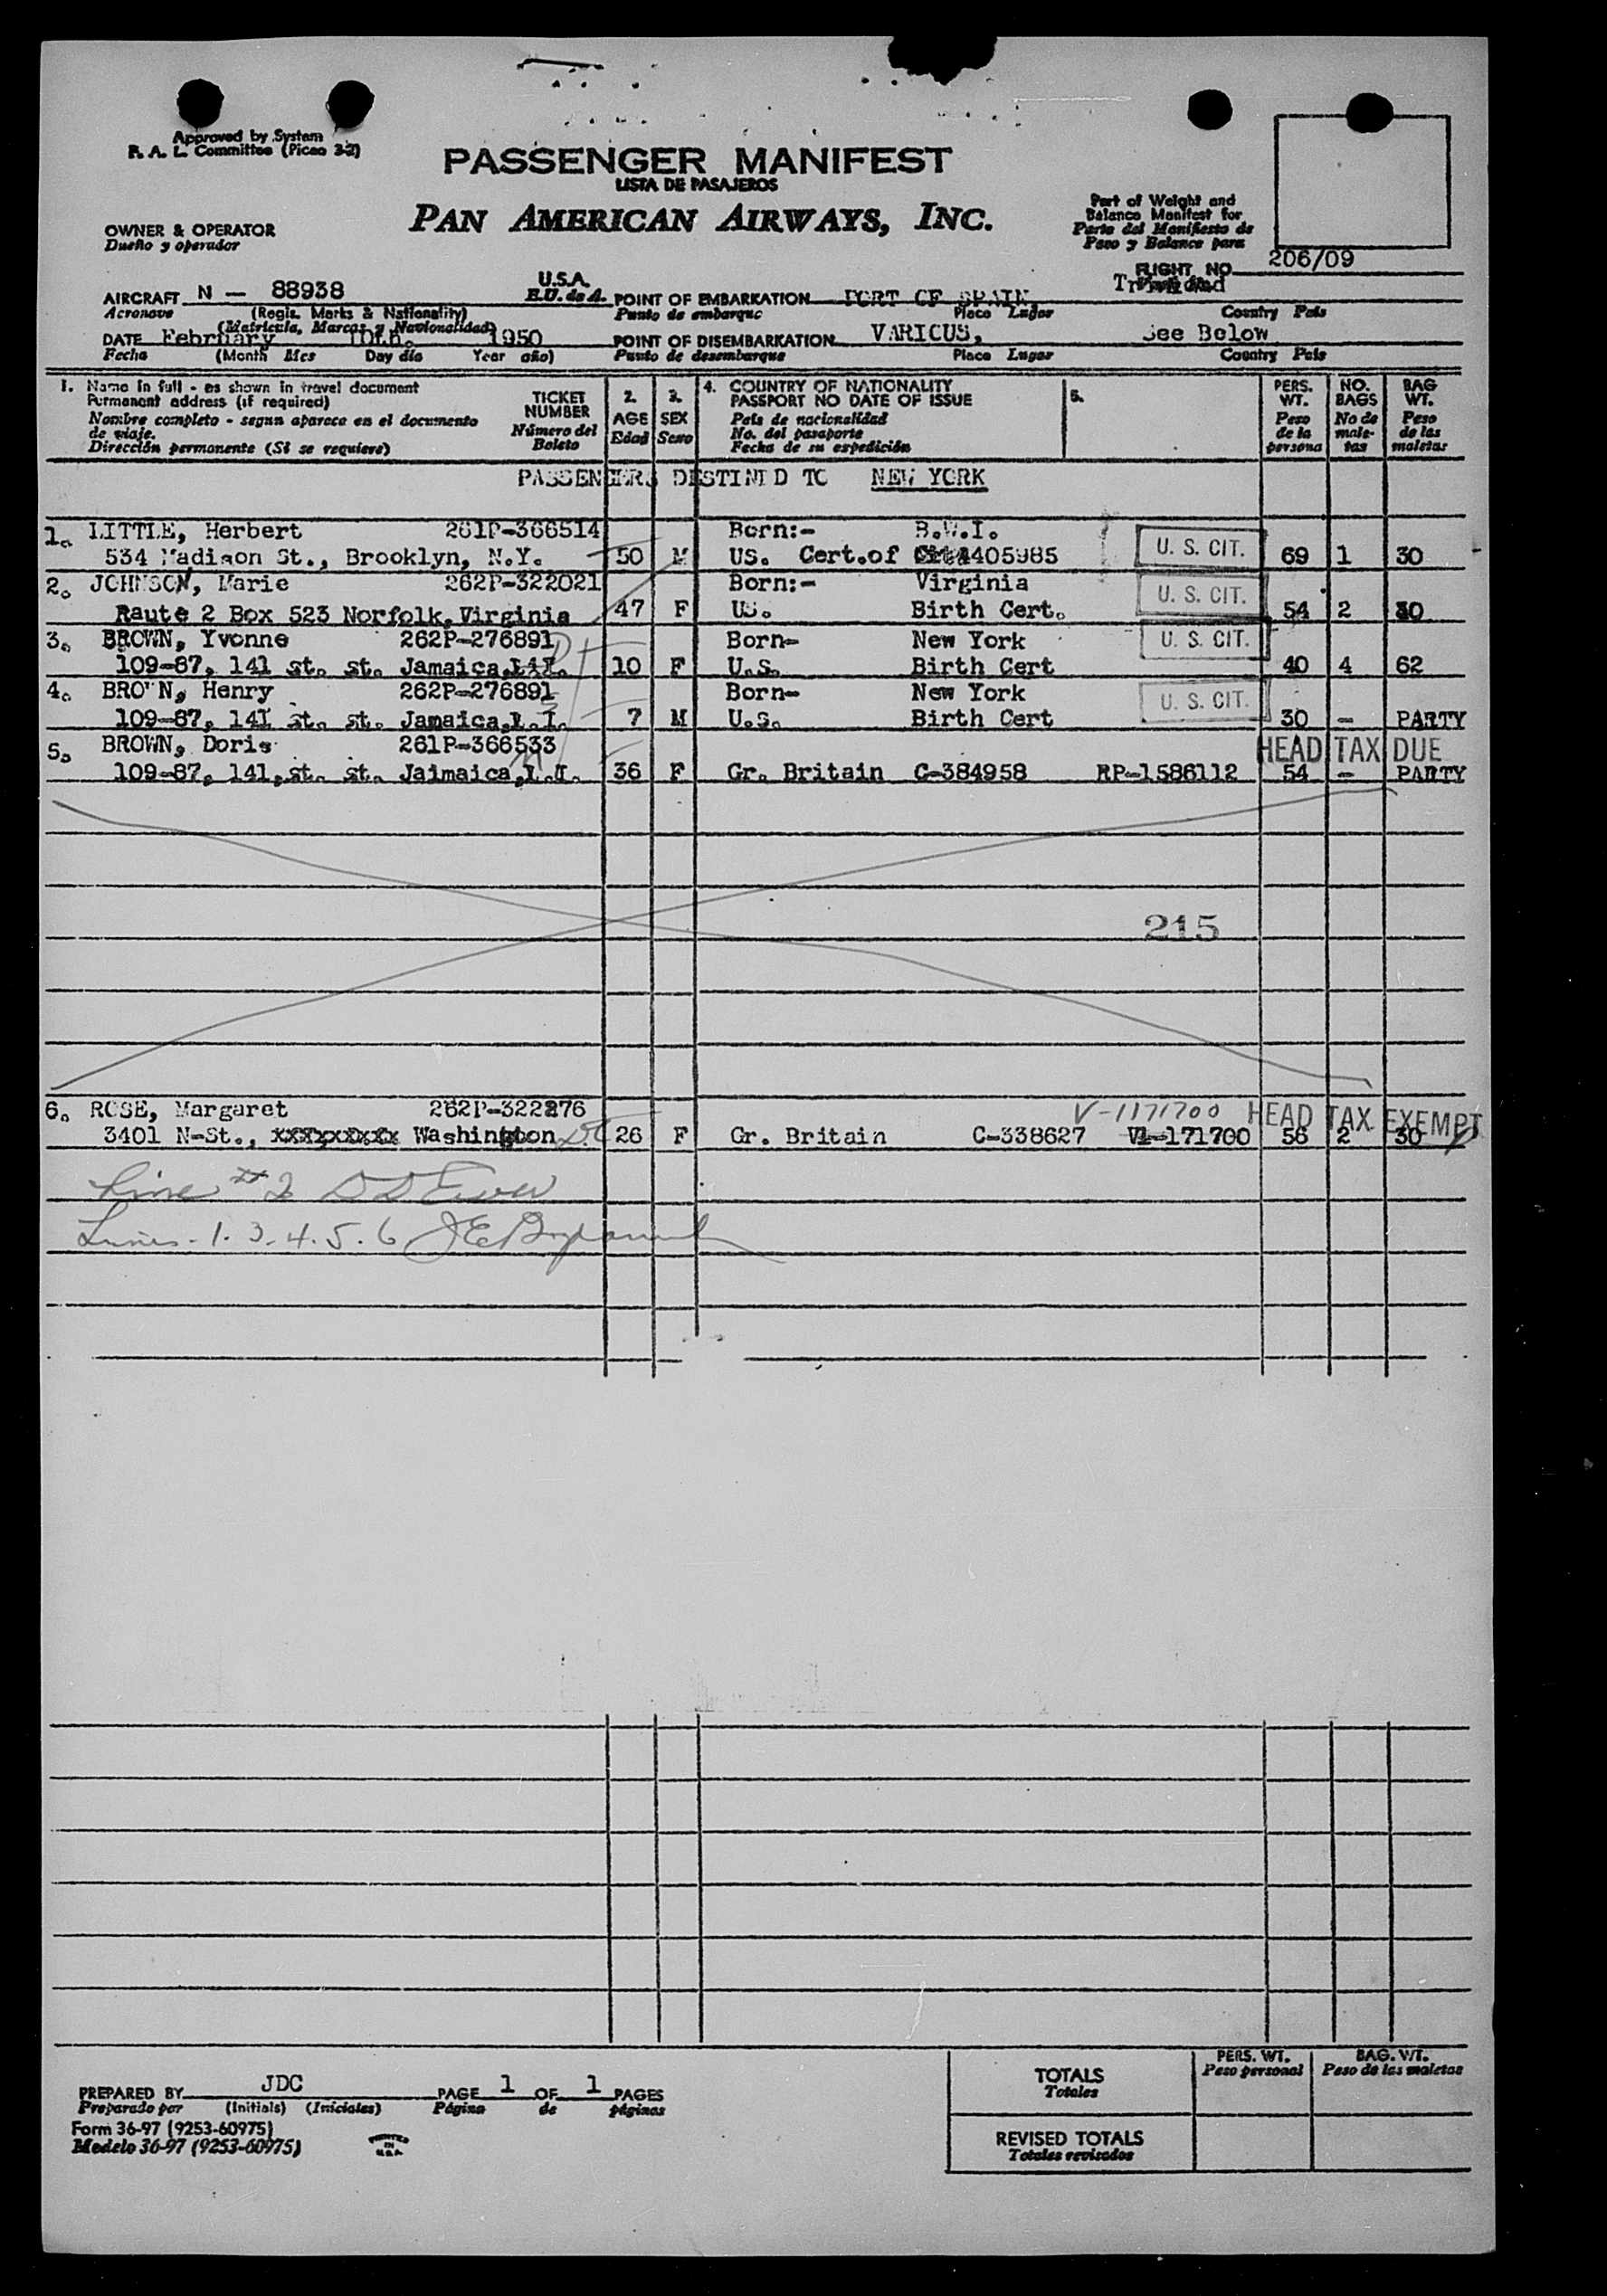 Approved by System
P. A. L. Committee (Picao 3-2)
PASSENGER MANIFEST
LISTA DE PASAJEROS
PAN AMERICAN AIRWAYS, INC.
OWNER & OPERATOR
Dueño y operador
Part of Weight and
Balance Manifest for
Parte del Manifiesto de
Peso y Balance para
FLIGHT NO. 206/09
AIRCRAFT N - 88938 U.S.A. POINT OF EMBARKATION PORT OF SPAIN, Trinidad
Aeronave (Regis. Marks & Nationality) E.U. de A. Punto de embarque Place Lugar Country País
(Matrícula, Marcas y Nacionalidad)
DATE February 10th. 1950 POINT OF DISEMBARKATION VARIOUS, See Below
Fecha (Month Mes Day día Year año) Punto de desembarque Place Lugar Country País
1. Name in full - as shown in travel document
Permanent address (if required)
Nombre completo - segun aparece en el documento
de viaje.
Dirección permanente (Si se requiere)
TICKET
NUMBER
Número del
Boleto
2.
AGE
Edad
3.
SEX
Sexo
4. COUNTRY OF NATIONALITY
PASSPORT NO DATE OF ISSUE
País de nacionalidad
No. del pasaporte
Fecha de su expedición
5.
PERS.
WT.
Peso
de la
persona
NO.
BAGS
No de
male-
tas
BAG
WT.
Peso
de las
maletas
PASSENGERS DESTINED TO NEW YORK
1. LITTLE, Herbert 261P-366514 Born:- B.W.I.
534 Madison St., Brooklyn, N.Y. 50 M US. Cert.of 405985 U. S. CIT. 69 1 30
2. JOHNSON, Marie 262P-322021 Born:- Virginia
Raute 2 Box 523 Norfolk,Virginia 47 F US. Birth Cert. U. S. CIT. 54 2 30
3. BROWN, Yvonne 262P-276891 Born- New York
109-87, 141 st. st. Jamaica,L.I. 10 F U.S. Birth Cert U. S. CIT. 40 4 62
4. BROWN, Henry 262P-276891 Born- New York
109-87, 141 st. st. Jamaica,L.I. 7 M U.S. Birth Cert U. S. CIT. 30 - PARTY
5. BROWN, Doris 261P-366533 HEAD TAX DUE
109-87, 141,st. st. Jaimaica,L.I. 36 F Gr. Britain C-384958 RP-1586112 54 - PARTY
215
6. ROSE, Margaret 262P-322276 V-1171700 HEAD TAX EXEMPT
3401 N-St., Washington D.C 26 F Gr. Britain C-338627 V1-171700 56 2 30
Line #2
Lines - 1. 3. 4. 5. 6
PREPARED BY JDC PAGE 1 OF 1 PAGES
Preparado por (Initials) (Iniciales) Página de páginas
Form 36-97 (9253-60975)
Modelo 36-97 (9253-60975)
PRINTED
IN
U.S.A.
TOTALS
Totales
PERS. WT.
Peso personal
BAG. WT.
Peso de las maletas
REVISED TOTALS
Totales revisados